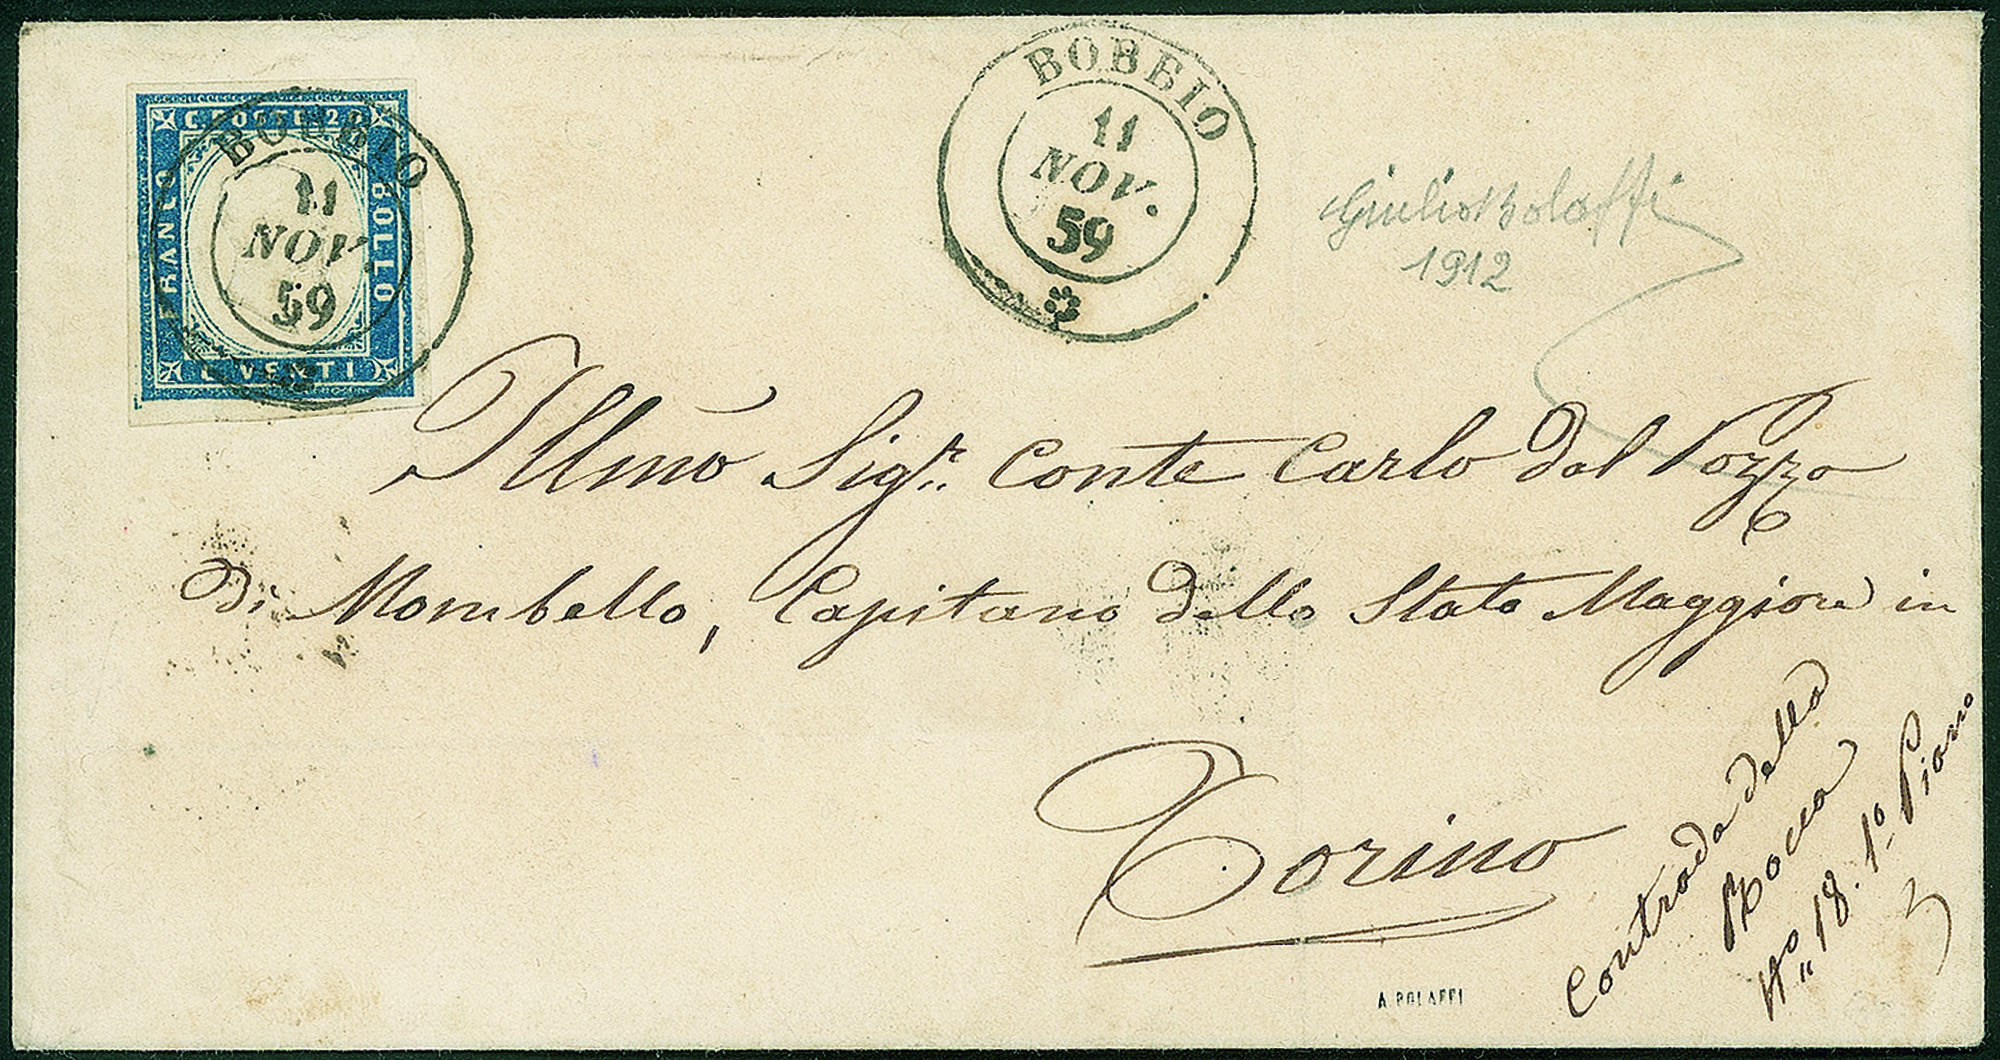 C. POSTE 20
FRANCO
BOLLO
C. VENTI
BOBBIO
11
NOV.
59
BOBBIO
11
NOV.
59
Giulio Bolaffi
1912
Illmo Sigr. Conte Carlo dal Pozzo
Di Mombello, Capitano dello Stato Maggiore in
Torino
Contrada della
Rocca
No 18. 1o Piano
A. BOLAFFI